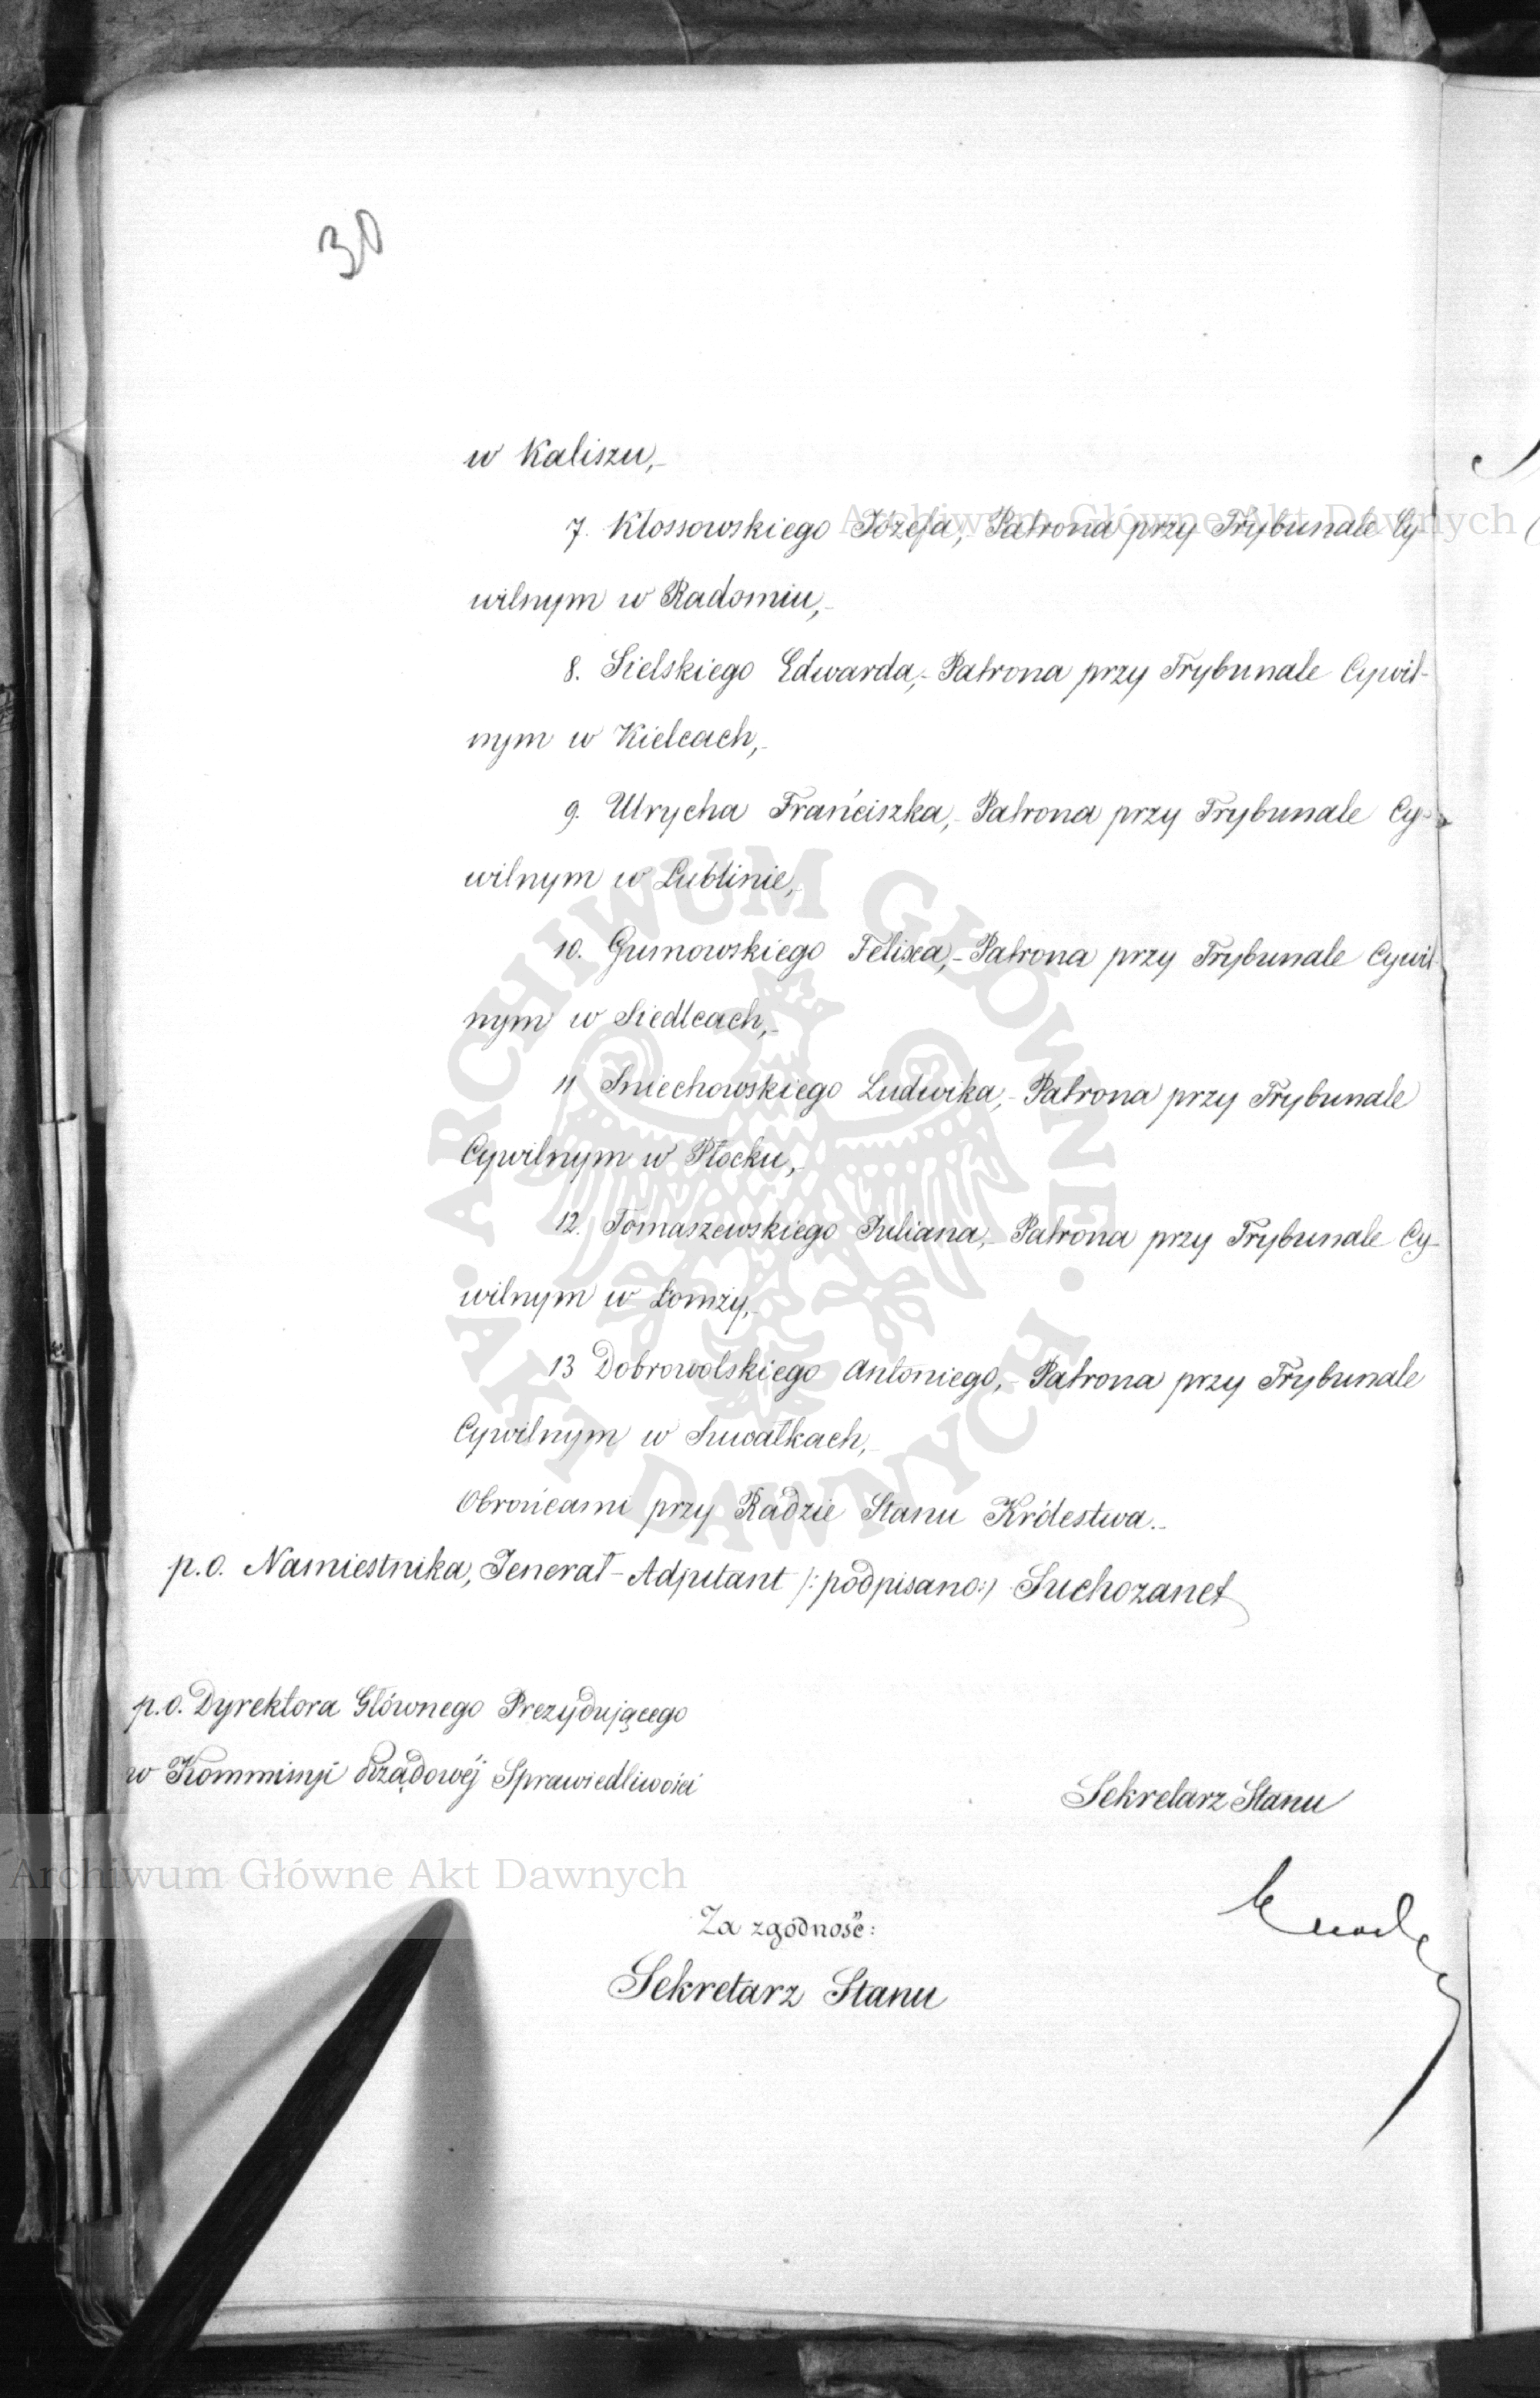 30
w Kaliszu,-
7. Klossowskiego Józefa,- Patrona przy Trybunale Cy-
wilnym w Radomiu,-
8. Sielskiego Edwarda,- Patrona przy Trybunale Cywil-
nym w Kielcach,-
9. Ulrycha Franciszka,- Patrona przy Trybunale Cy-
wilnym w Lublinie,-
10. Gumowskiego Felixa,- Patrona przy Trybunale Cywil-
nym w Siedlcach,-
11 Sniechowskiego Ludwika,- Patrona przy Trybunale
Cywilnym w Płocku,-
12. Tomaszewskiego Juliana,- Patrona przy Trybunale Cy-
wilnym w Łomży,-
13 Dobrowolskiego Antoniego,- Patrona przy Trybunale
Cywilnym w Suwałkach,-
Obrońcami przy Radzie Stanu Królestwa.-
p.o. Namiestnika, Jenerał-Adjutant /:podpisano:/ Suchozanet
p.o. Dyrektora Głównego Prezydującego
w Kommissyi Rządowéj Sprawiedliwości
Sekretarz Stanu
Za zgodność:
Sekretarz Stanu
Archiwum Główne Akt Dawnych
Archiwum Główne Akt Dawnych
ARCHIWUM GŁÓWNE AKT DAWNYCH